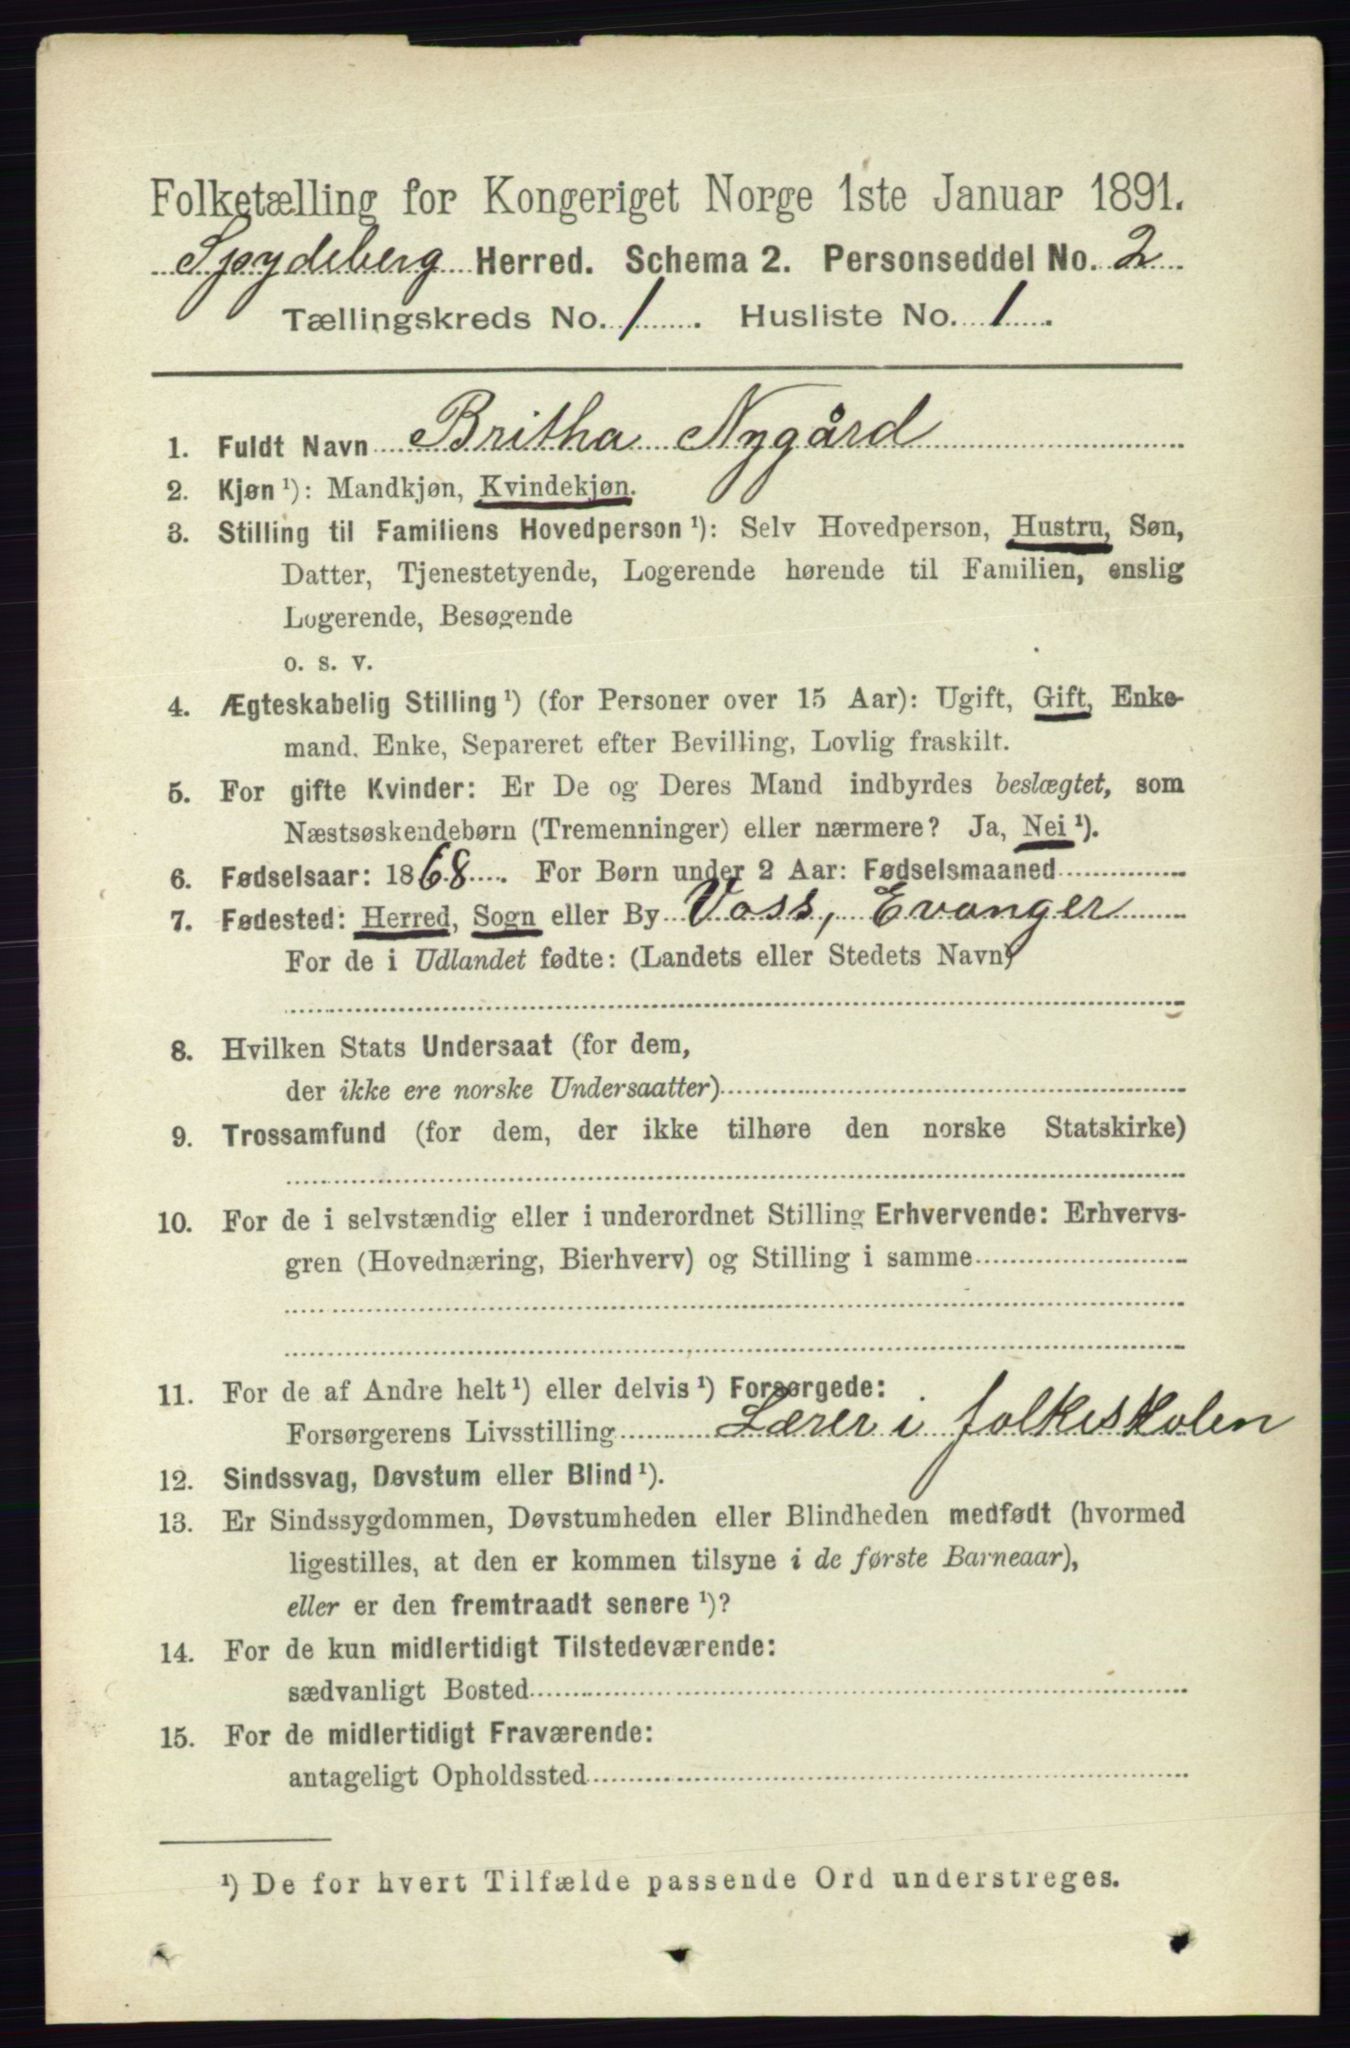 Folketælling for Kongeriget Norge 1ste Januar 1891.
Spydeberg Herred. Schema 2. Personseddel No. 2
Tællingskreds No. 1. Husliste No. 1.
1. Fuldt Navn Britha Nygård
2. Kjøn ¹): Mandkjøn, Kvindekjøn.
3. Stilling til Familiens Hovedperson ¹): Selv Hovedperson, Hustru, Søn,
Datter, Tjenestetyende, Logerende hørende til Familien, enslig
Logerende, Besøgende
o. s. v.
4. Ægteskabelig Stilling ¹) (for Personer over 15 Aar): Ugift, Gift, Enke-
mand, Enke, Separeret efter Bevilling, Lovlig fraskilt.
5. For gifte Kvinder: Er De og Deres Mand indbyrdes beslægtet, som
Næstsøskendebørn (Tremenninger) eller nærmere? Ja, Nei ¹).
6. Fødselsaar: 1868. For Børn under 2 Aar: Fødselsmaaned
7. Fødested: Herred, Sogn eller By Voss, Evanger
For de i Udlandet fødte: (Landets eller Stedets Navn)
8. Hvilken Stats Undersaat (for dem,
der ikke ere norske Undersaatter)
9. Trossamfund (for dem, der ikke tilhøre den norske Statskirke)
10. For de i selvstændig eller i underordnet Stilling Erhvervende: Erhvervs-
gren (Hovednæring, Bierhverv) og Stilling i samme
11. For de af Andre helt ¹) eller delvis ¹) Forsørgede:
Forsørgerens Livsstilling Lærer i folkeskolen
12. Sindssvag, Døvstum eller Blind ¹).
13. Er Sindssygdommen, Døvstumheden eller Blindheden medfødt (hvormed
ligestilles, at den er kommen tilsyne i de første Barneaar),
eller er den fremtraadt senere ¹)?
14. For de kun midlertidigt Tilstedeværende:
sædvanligt Bosted
15. For de midlertidigt Fraværende:
antageligt Opholdssted
¹) De for hvert Tilfælde passende Ord understreges.